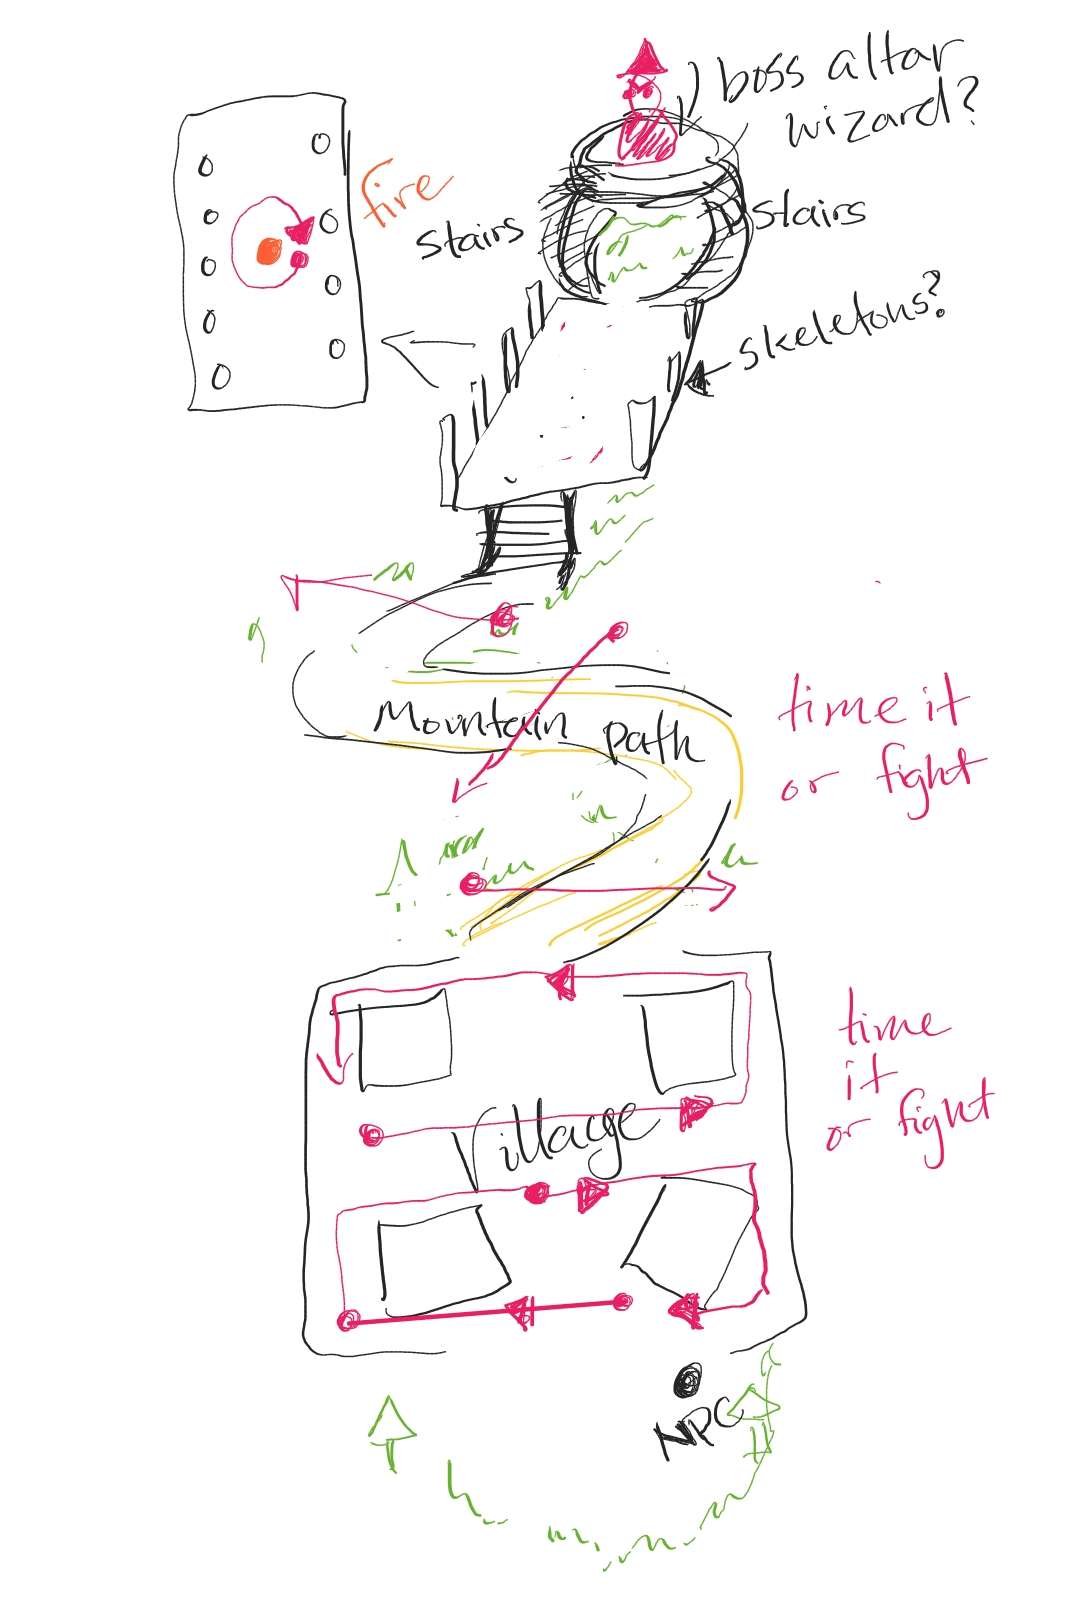 boss altar
wizard?
fire
stairs
stairs
skeletons?
Mountain path
time it
or fight
time
it
or fight
Village
NPC